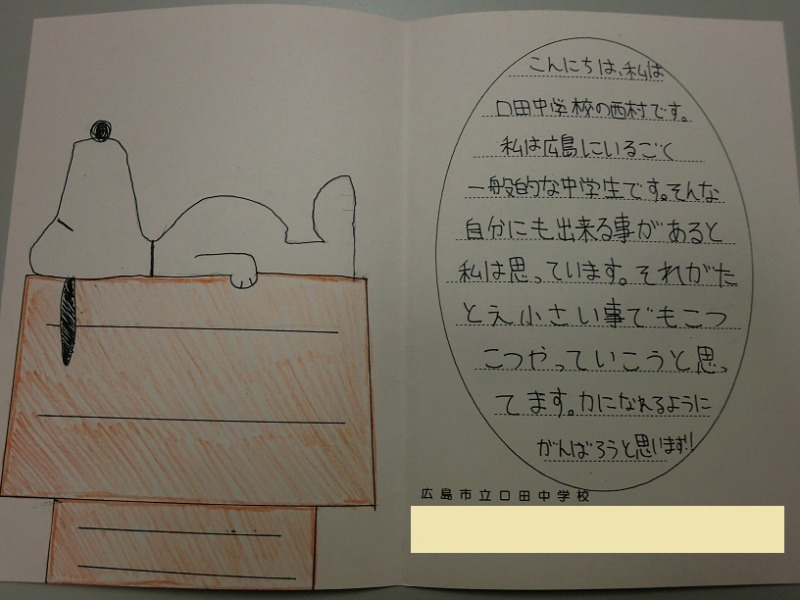 こんにちは、私は
口田中学校の西村です。
私は広島にいるごく
一般的な中学生です。そんな
自分にも出来る事があると
私は思っています。それがた
とえ小さい事でもこつ
こつやっていこうと思っ
てます。力になれるように
がんばろうと思います!!
広島市立口田中学校